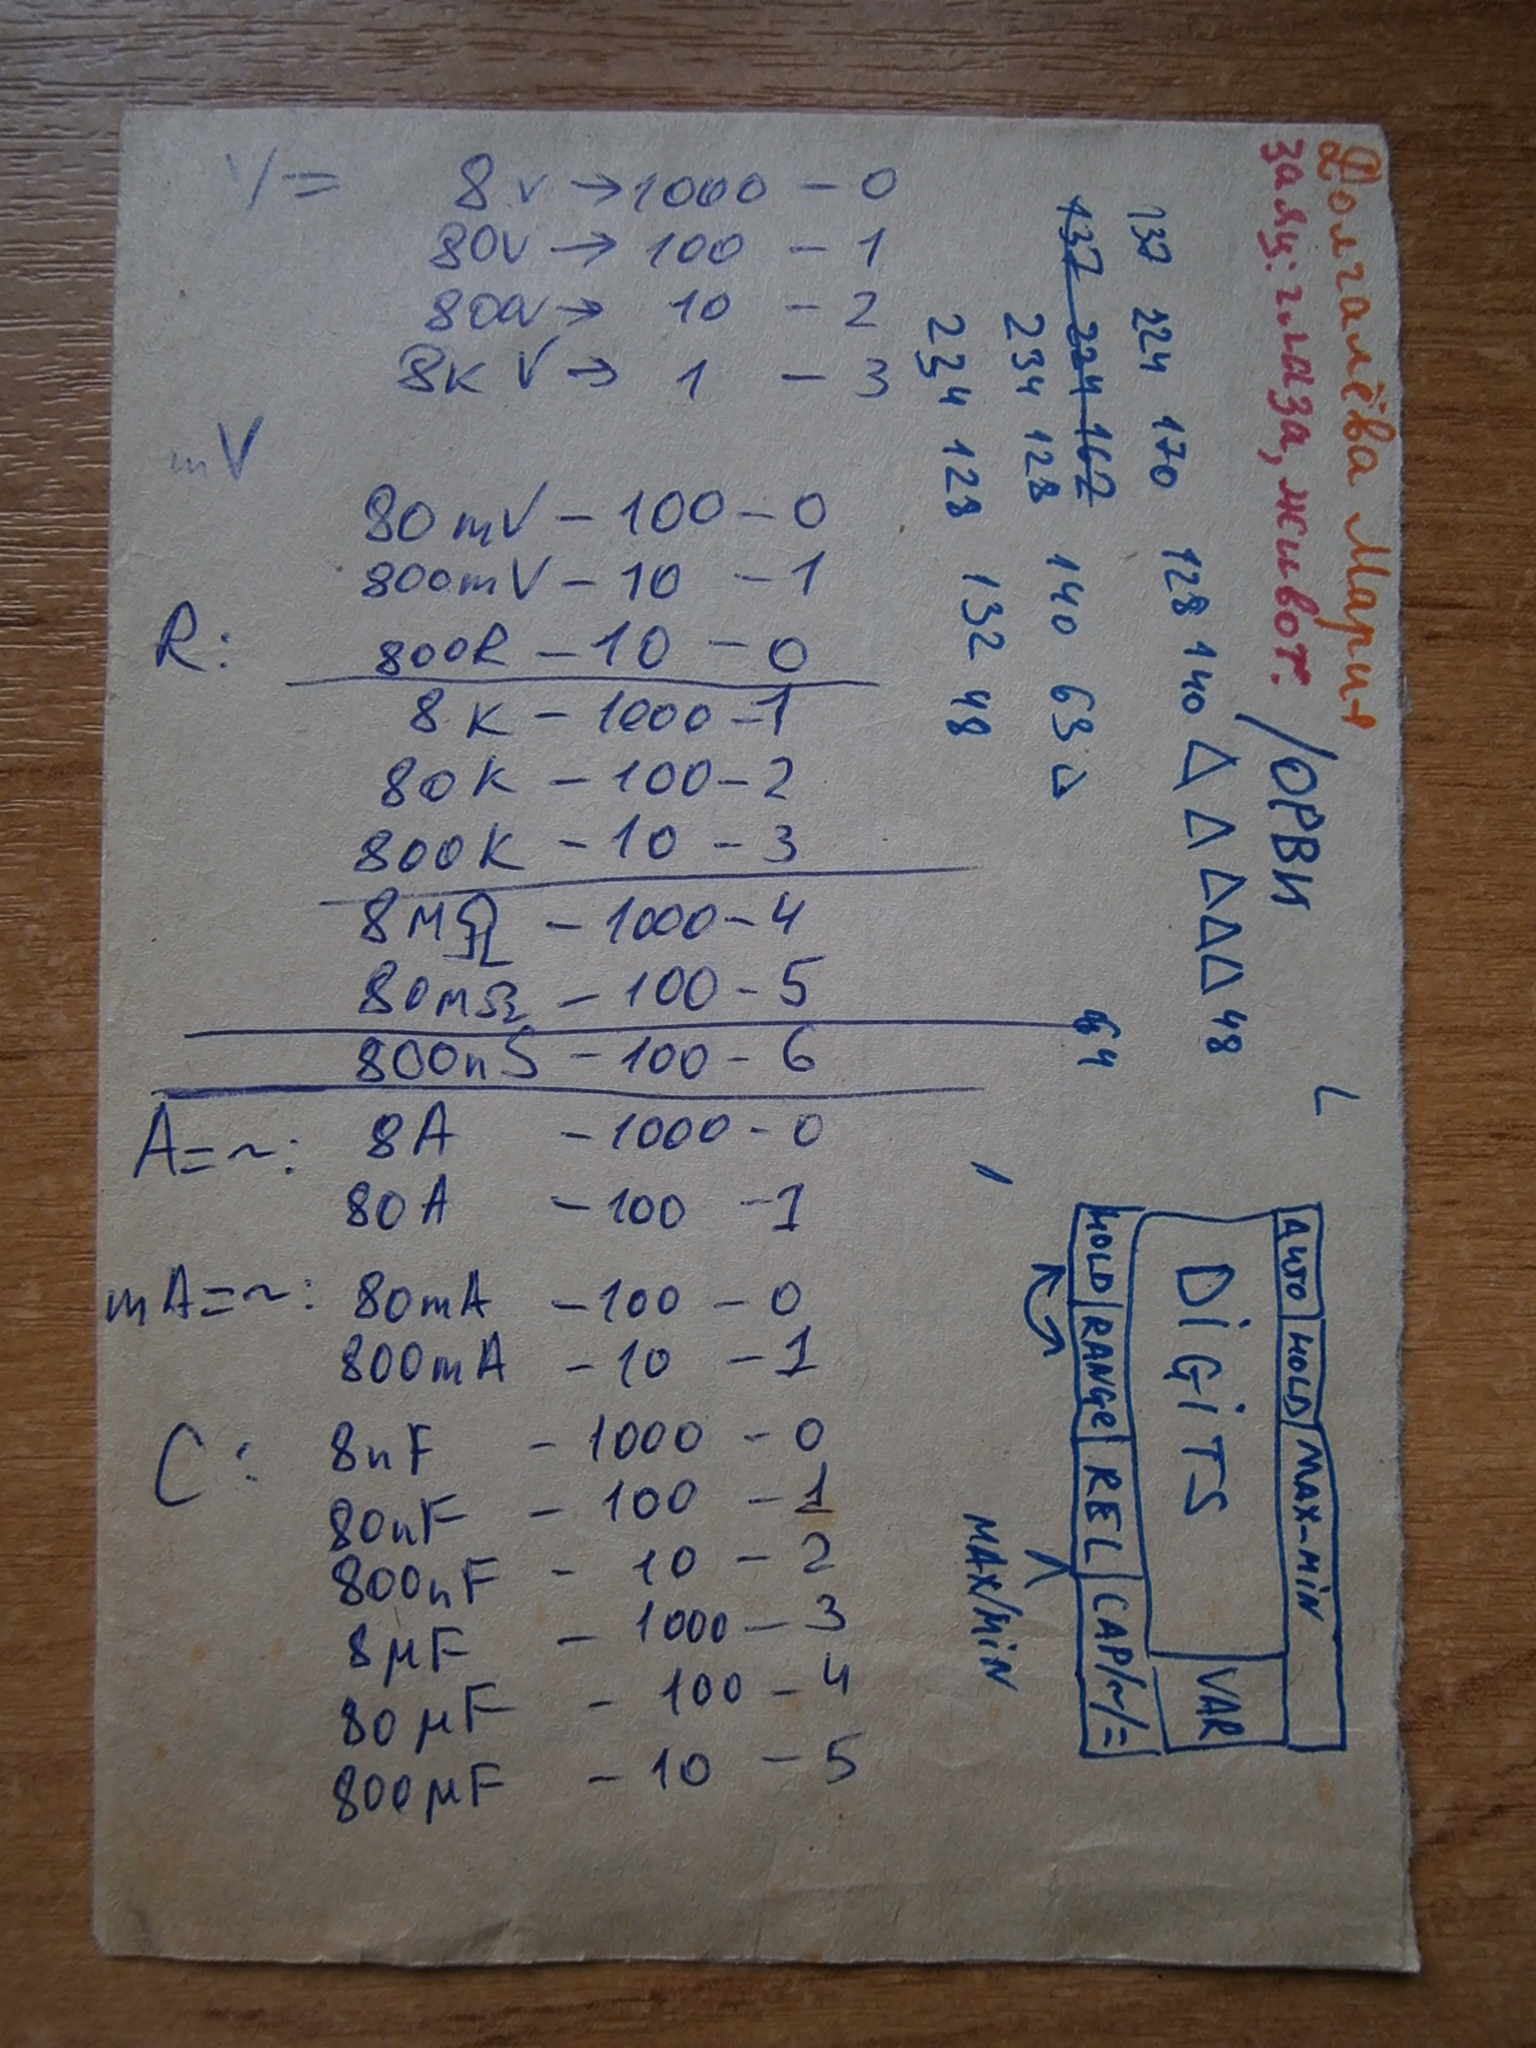 V= 8v → 1000 - 0
80v → 100 - 1
800v → 10 - 2
8kV → 1 - 3
mV
80mV - 100 - 0
800mV - 10 - 1
R: 800R - 10 - 0
8K - 1000 - 1
80K - 100 - 2
800K - 10 - 3
8MΩ - 1000 - 4
80MΩ - 100 - 5
800nS - 100 - 6
A=~: 8A - 1000 - 0
80A - 100 - 1
mA=~: 80mA - 100 - 0
800mA - 10 - 1
C: 8nF - 1000 - 0
80nF - 100 - 1
800nF - 10 - 2
8µF - 1000 - 3
80µF - 100 - 4
800µF - 10 - 5
Долгалёва Мария
глаза, живот.
/ОРВИ
137 224 170 128 140 △ △ △ △ △ 48
137 224 167
234 128 140 63 △
64
234 128 132 48
AUTO HOLD MAX-MiN
DiGiTS VAR
HOLD RANGE REL CAP/~/=
MAX/MiN